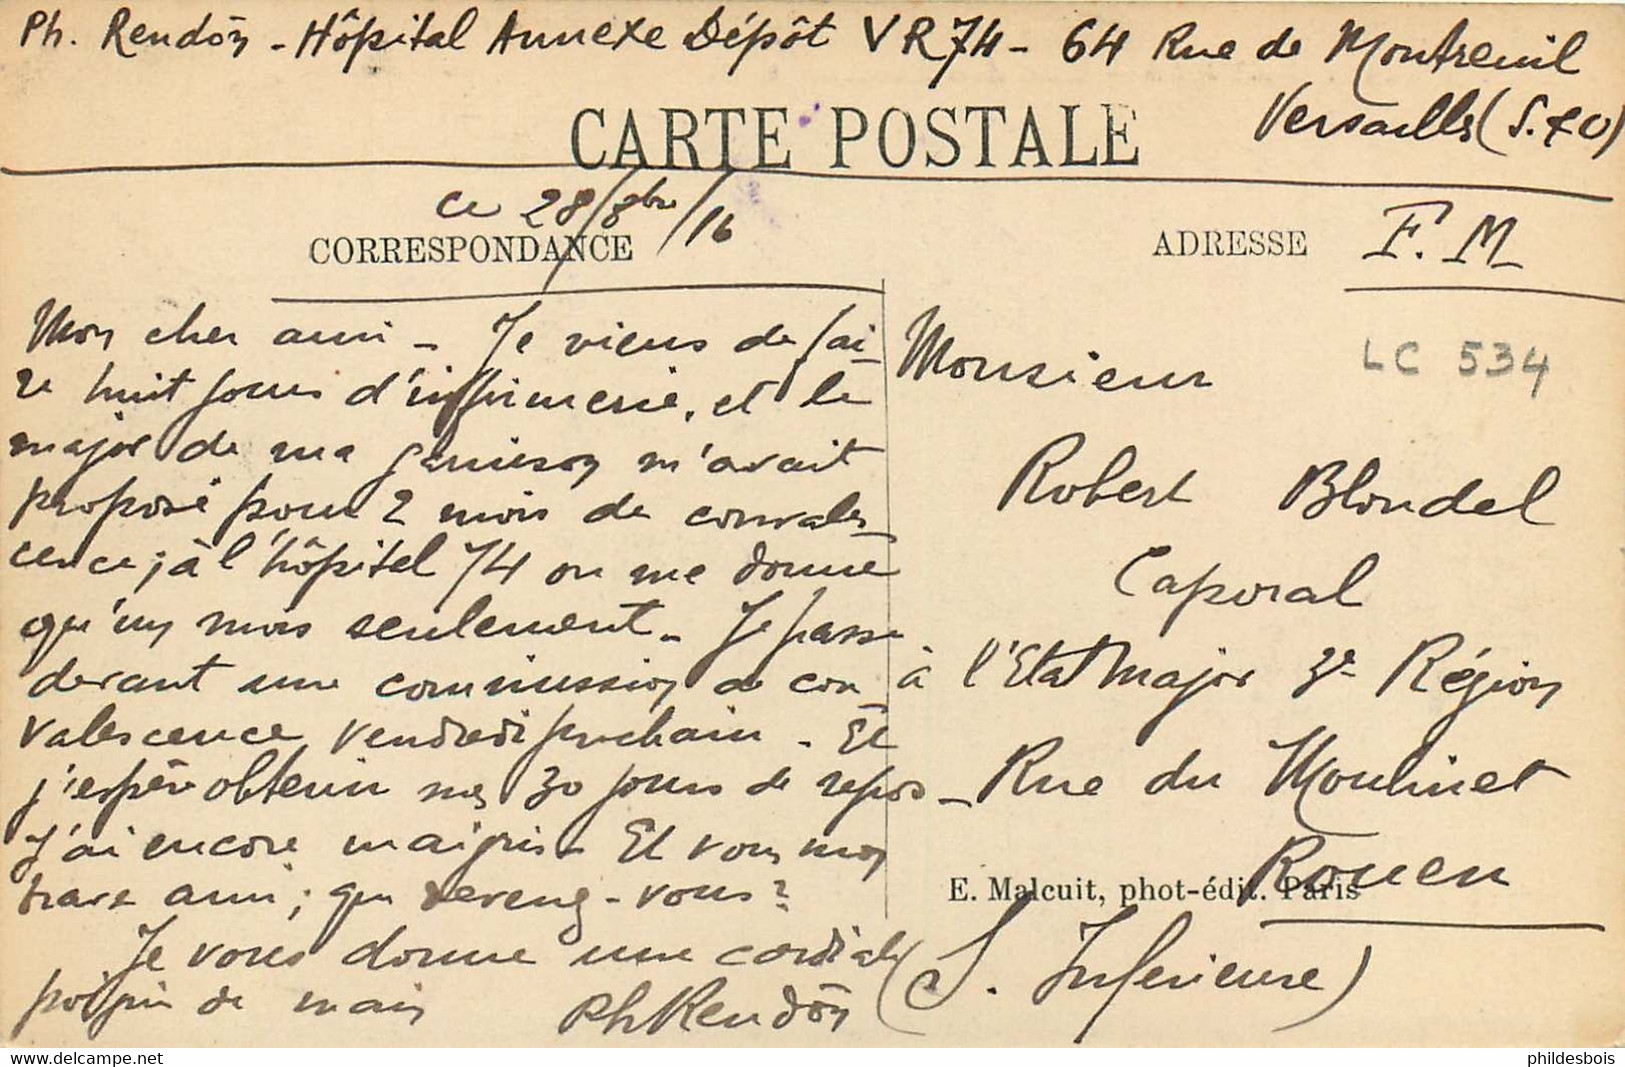 Ph. Rendón - Hôpital Annexe Dépôt VR74 - 64 Rue de Montreuil
Versailles (S.&O)
CARTE POSTALE
ce 28/8bre/16
CORRESPONDANCE
Mon cher ami - Je viens de fai-
re huit jours d'infirmerie, et le
major de ma garnison m'avait
proposé pour 2 mois de convales-
cence; à l'hôpital 74 on me donne
qu'un mois seulement - Je passe
devant une commission de con-
valescence vendredi prochain - Et
j'espère obtenir mes 30 jours de repos -
J'ai encore maigri - Et vous mon
brave ami; que devenez-vous?
Je vous donne une cordiale
poignée de main
Ph Rendón
ADRESSE F.M
LC 534
Monsieur
Robert Blondel
Caporal
à l'Etat Major 3e Région
Rue du Moulinet
Rouen
E. Malcuit, phot-édit. Paris
(S. Inférieure)
phildesbois